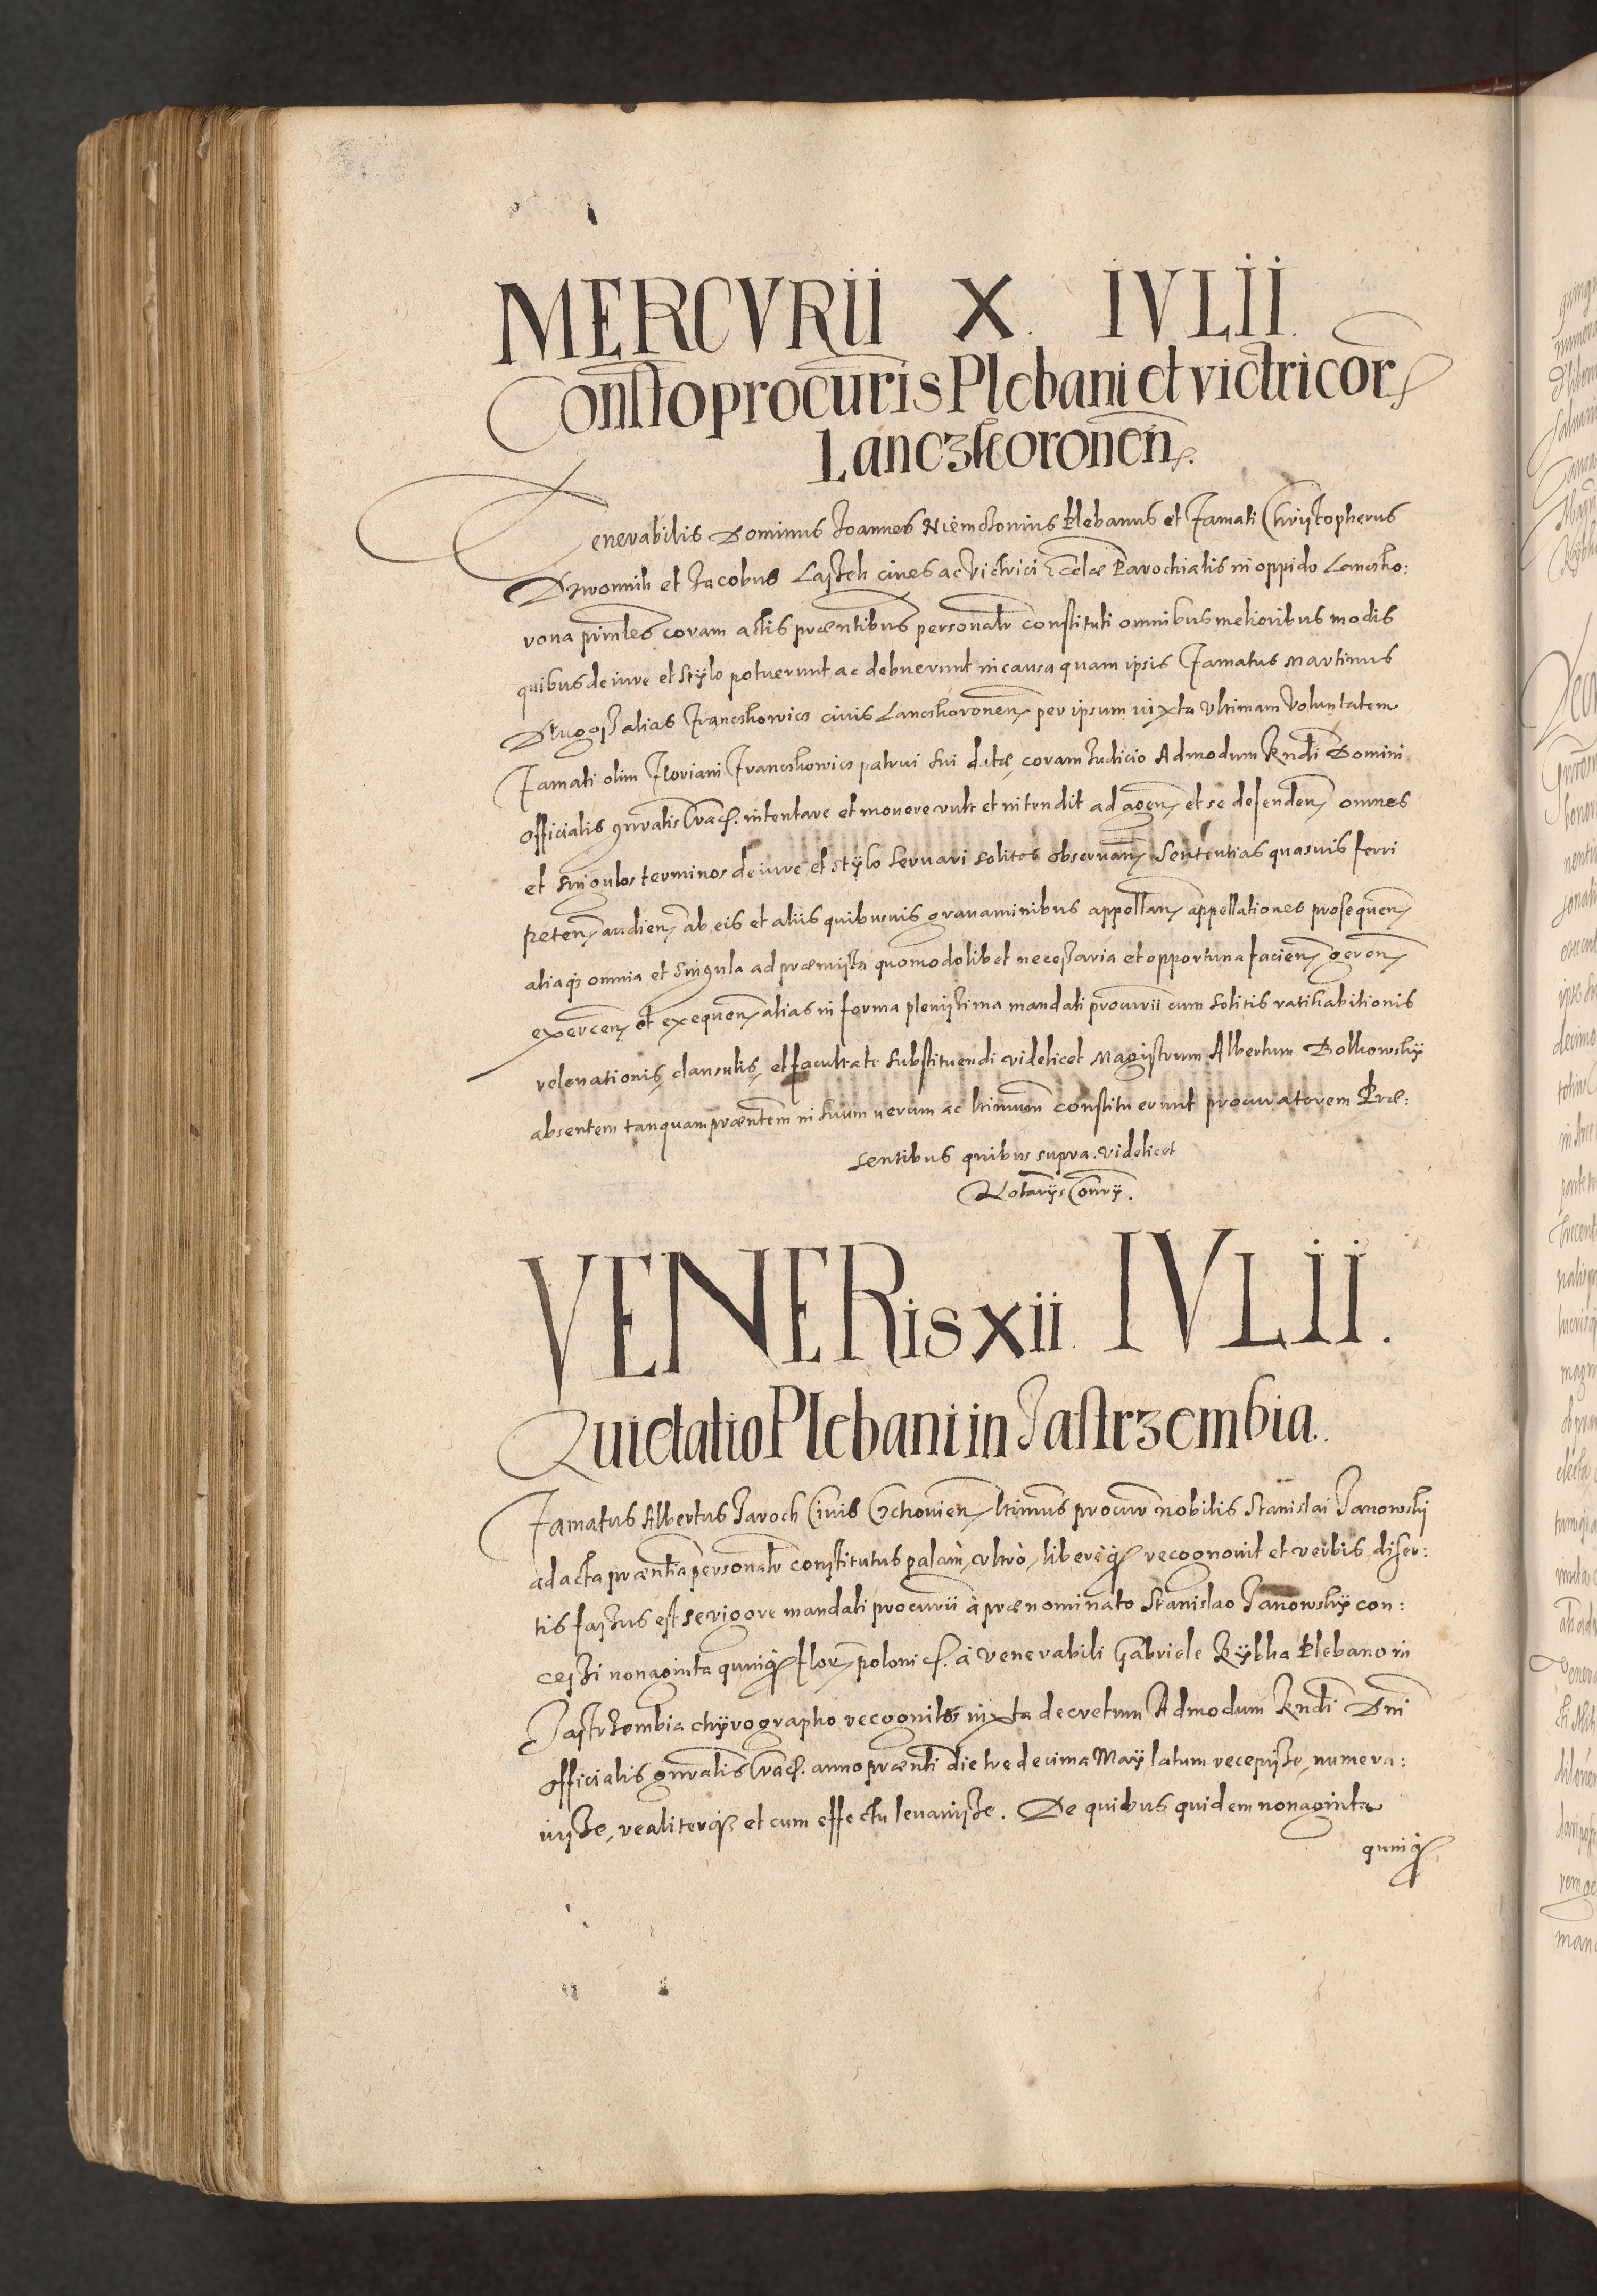 MERCVRII X. IVLII.
Consto procuris Plebani et victricor
Lanczkoronen.
Venerabilis Dominus Joannes Niemstonius Plebanus et Famati Christopherus
Dzwonnik et Jacobus Lassek cives ac victrici Eccłæ Parochialis in oppido Lancsko:
rona prīnles coram actis præntibus personalr constituti omnibus melioribus modis
quibus de iure et stylo potuerunt ac debuerunt in causa quam ipsis Famatus Martinus
Dlugosz alias Franczkowicz civis Lanczkoronen per ipsum iuxta ultimam voluntatem
Famati olim Floriani Franczkowicz patrui sui dictæ, coram Judicio Admodum Rndi Domini
Officialis gnralis Crac. intentare et mouere vult et intendit ad agen et se defenden omnes
et singulos terminos de iure et stylo seruari solitos obseruan sententias quasuis ferri
peten audien ab eis et aliis quibusuis grauaminibus appellan appellationes prosequen
aliaq omnia et singula ad præmissa quomodolibet necessaria et opportuna facien geren
exercen et exequen alias in forma plenissima mandati procurii cum solitis ratihabitionis
releuationis, clausulis, et facultate substituendi videlicet Magistrum Albertum Bolkowsky
absentem tanquam præntem in suum uerum ac ltimum constituerunt procuratorem Præ:
sentibus quibus supra. videlicet
Notarijs Conrij.
VENERis xii. IVLII.
Quietatio Plebani in Jastrzembia.
Famatus Albertus Jaroch Civis Czchovien ltimus procur nobilis Stanislai Janowski
ad acta præntia personalr constitutus palam, ultrò, liberèq recognouit et verbis diser:
tis fassus est se vigore mandati procurii à prænominato Stanislao Janowsky con:
cessi nonaginta quinq flor polonic. à Venerabili Gabriele Rybka Plebano in
Jastrzembia chyrographo recognitos iuxta decretum Admodum Rndi Dni
Officialis gnralis Crac. anno prænti die tredecima May latum recepisse, numera:
uisse, realiterq et cum effectu leuauisse. De quibus quidem nonaginta
quinq